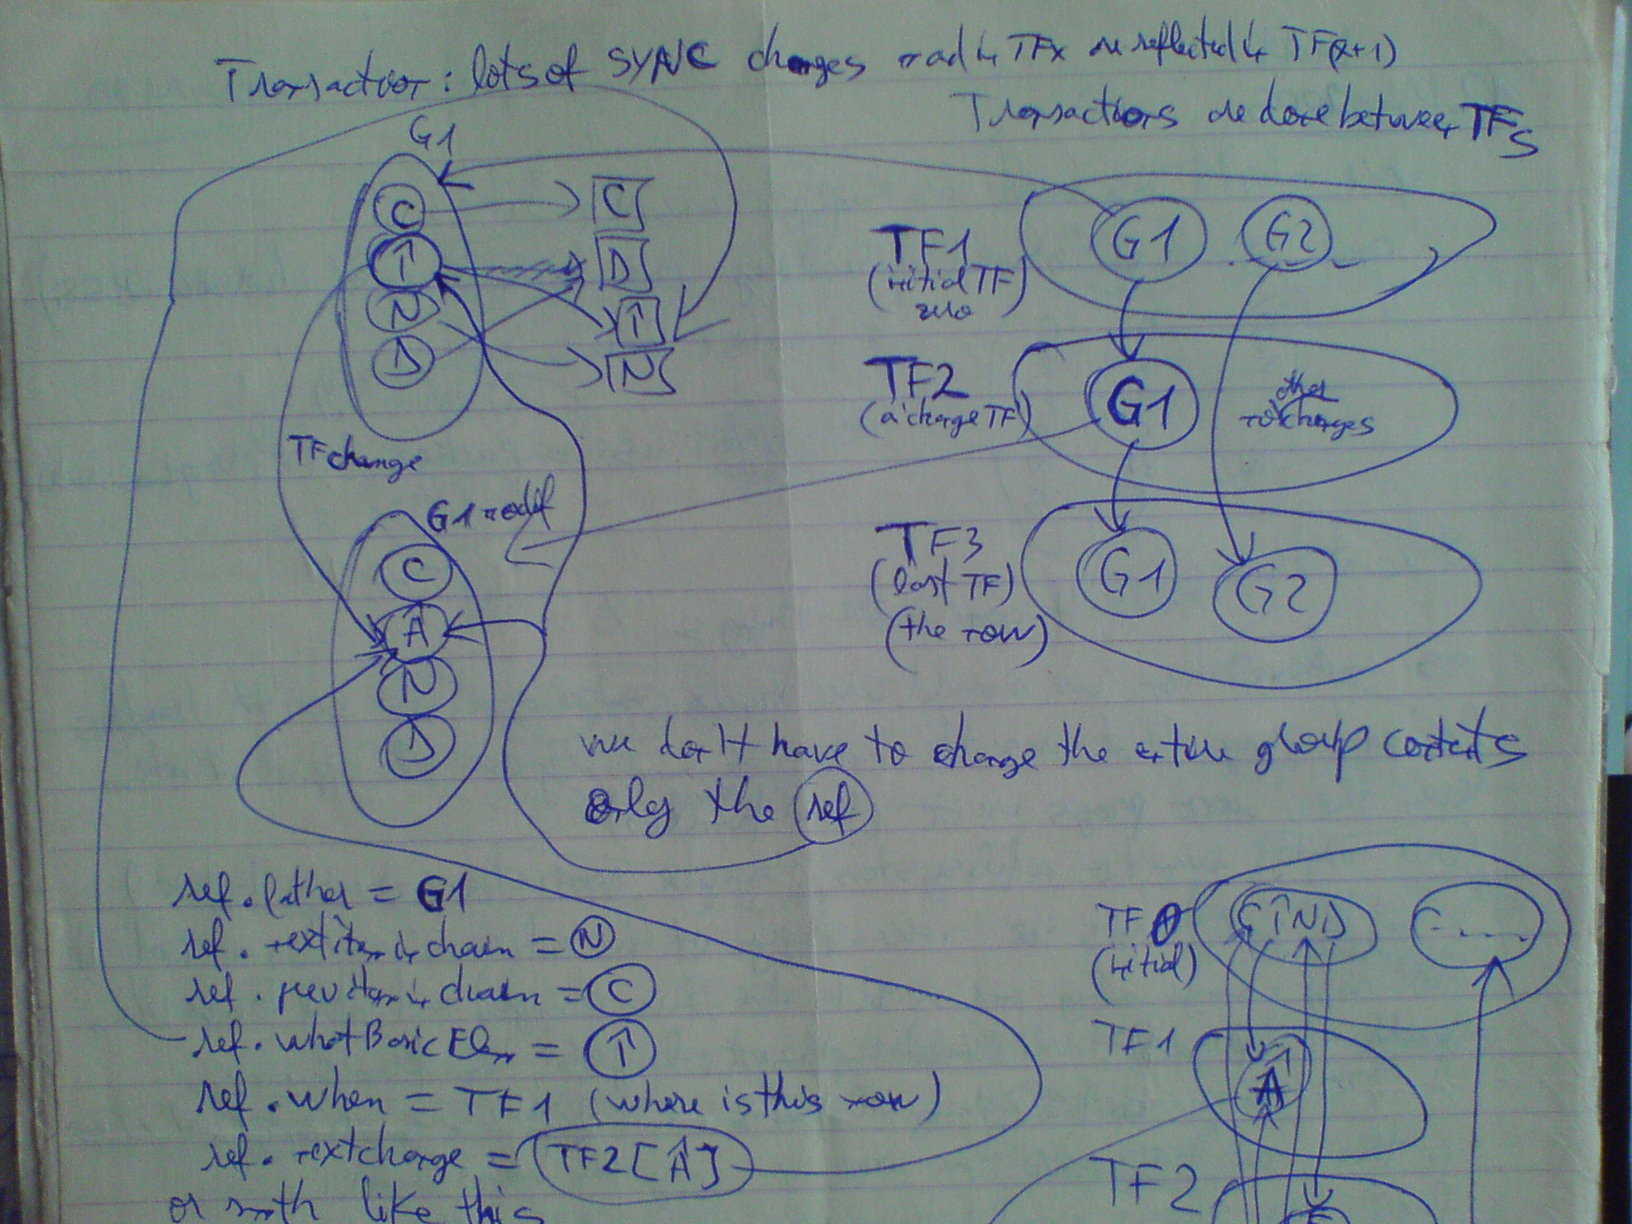 Transaction: lots of SYNC changes made in TFx are reflected in TF(x+1)
Transactions are done between TFs
G1
C
T
N
D
C
D
T
N
TF1
(initial TF)
zero
G1 G2
TF2
(a change TF)
G1
other
no changes
TF3
(last TF)
(the now)
G1 G2
TF change
G1 modif
C
A
N
D
we don't have to change the entire group contents
only the ref
ref.father = G1
ref.next item in chain = N
ref.prev item in chain = C
ref.whatBasicElem = T
ref.when = TF1 (where is this now)
ref.nextchange = TF2[A]
or smth like this
TF0
(initial)
CTND
C----
TF1
A
TF2